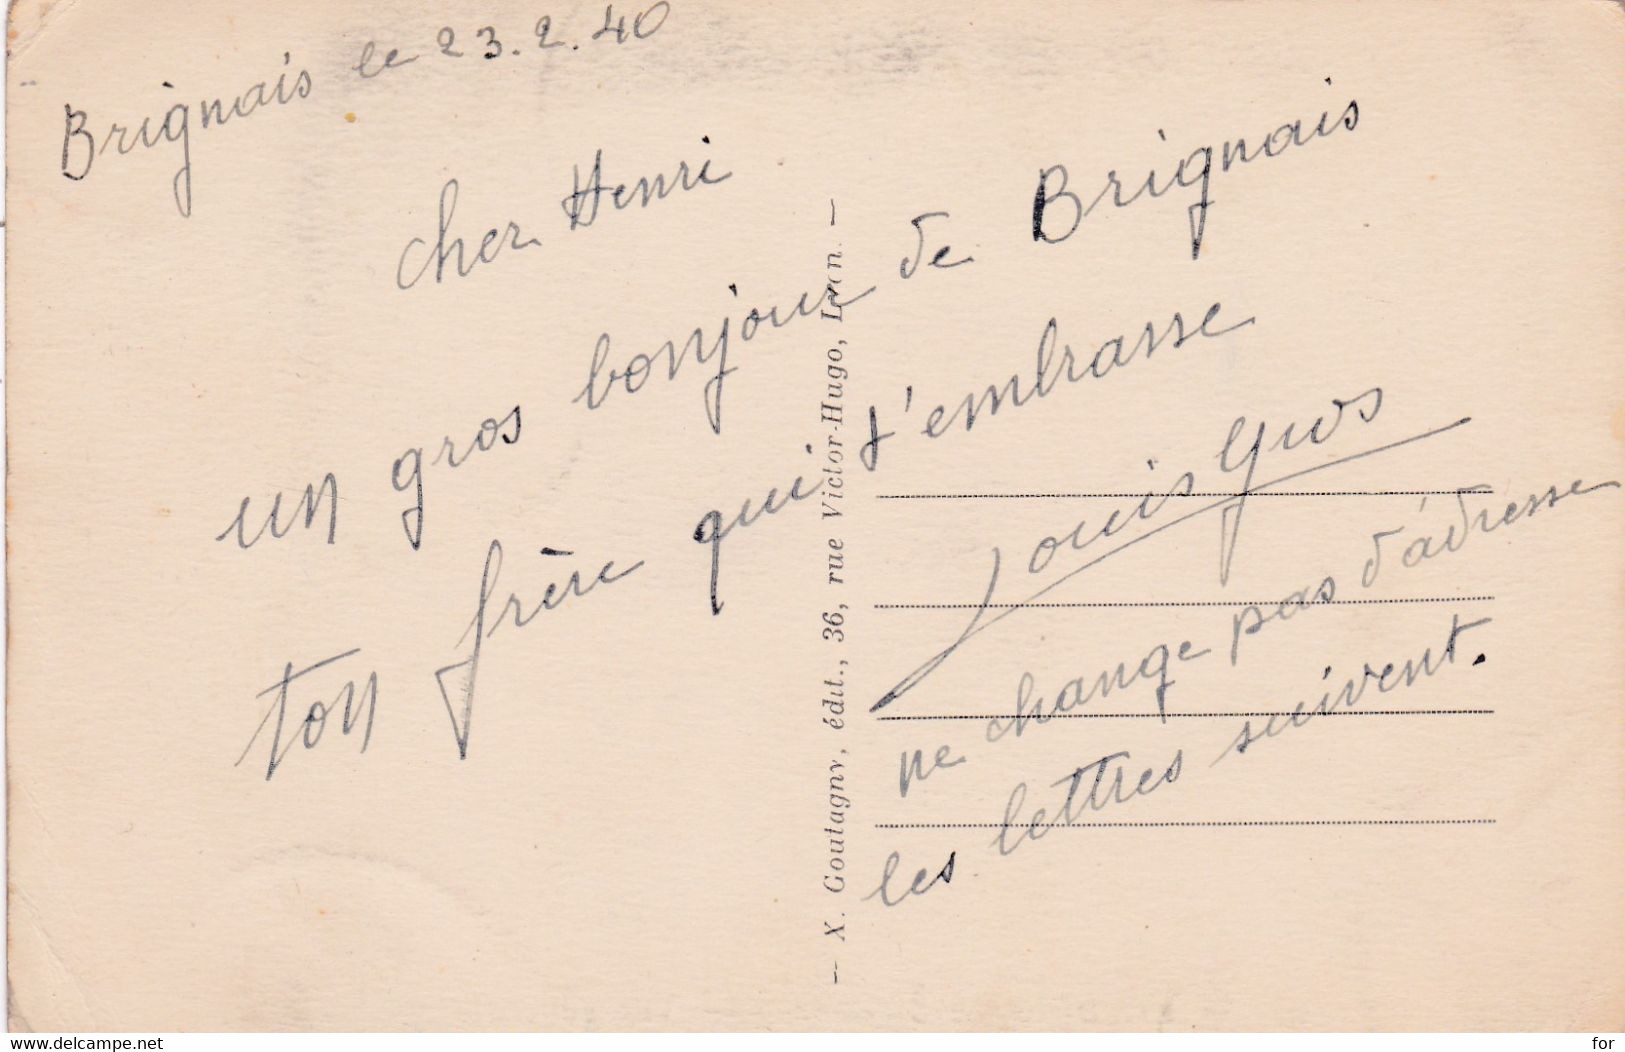 Brignais le 23.2.40
cher Henri
un gros bonjour de Brignais
ton frère qui t'embrasse
Louis Gros
ne change pas d'adresse
les lettres suivent.
— X. Goutagny, édit., 36, rue Victor-Hugo, Lyon. —
www.delcampe.net
for